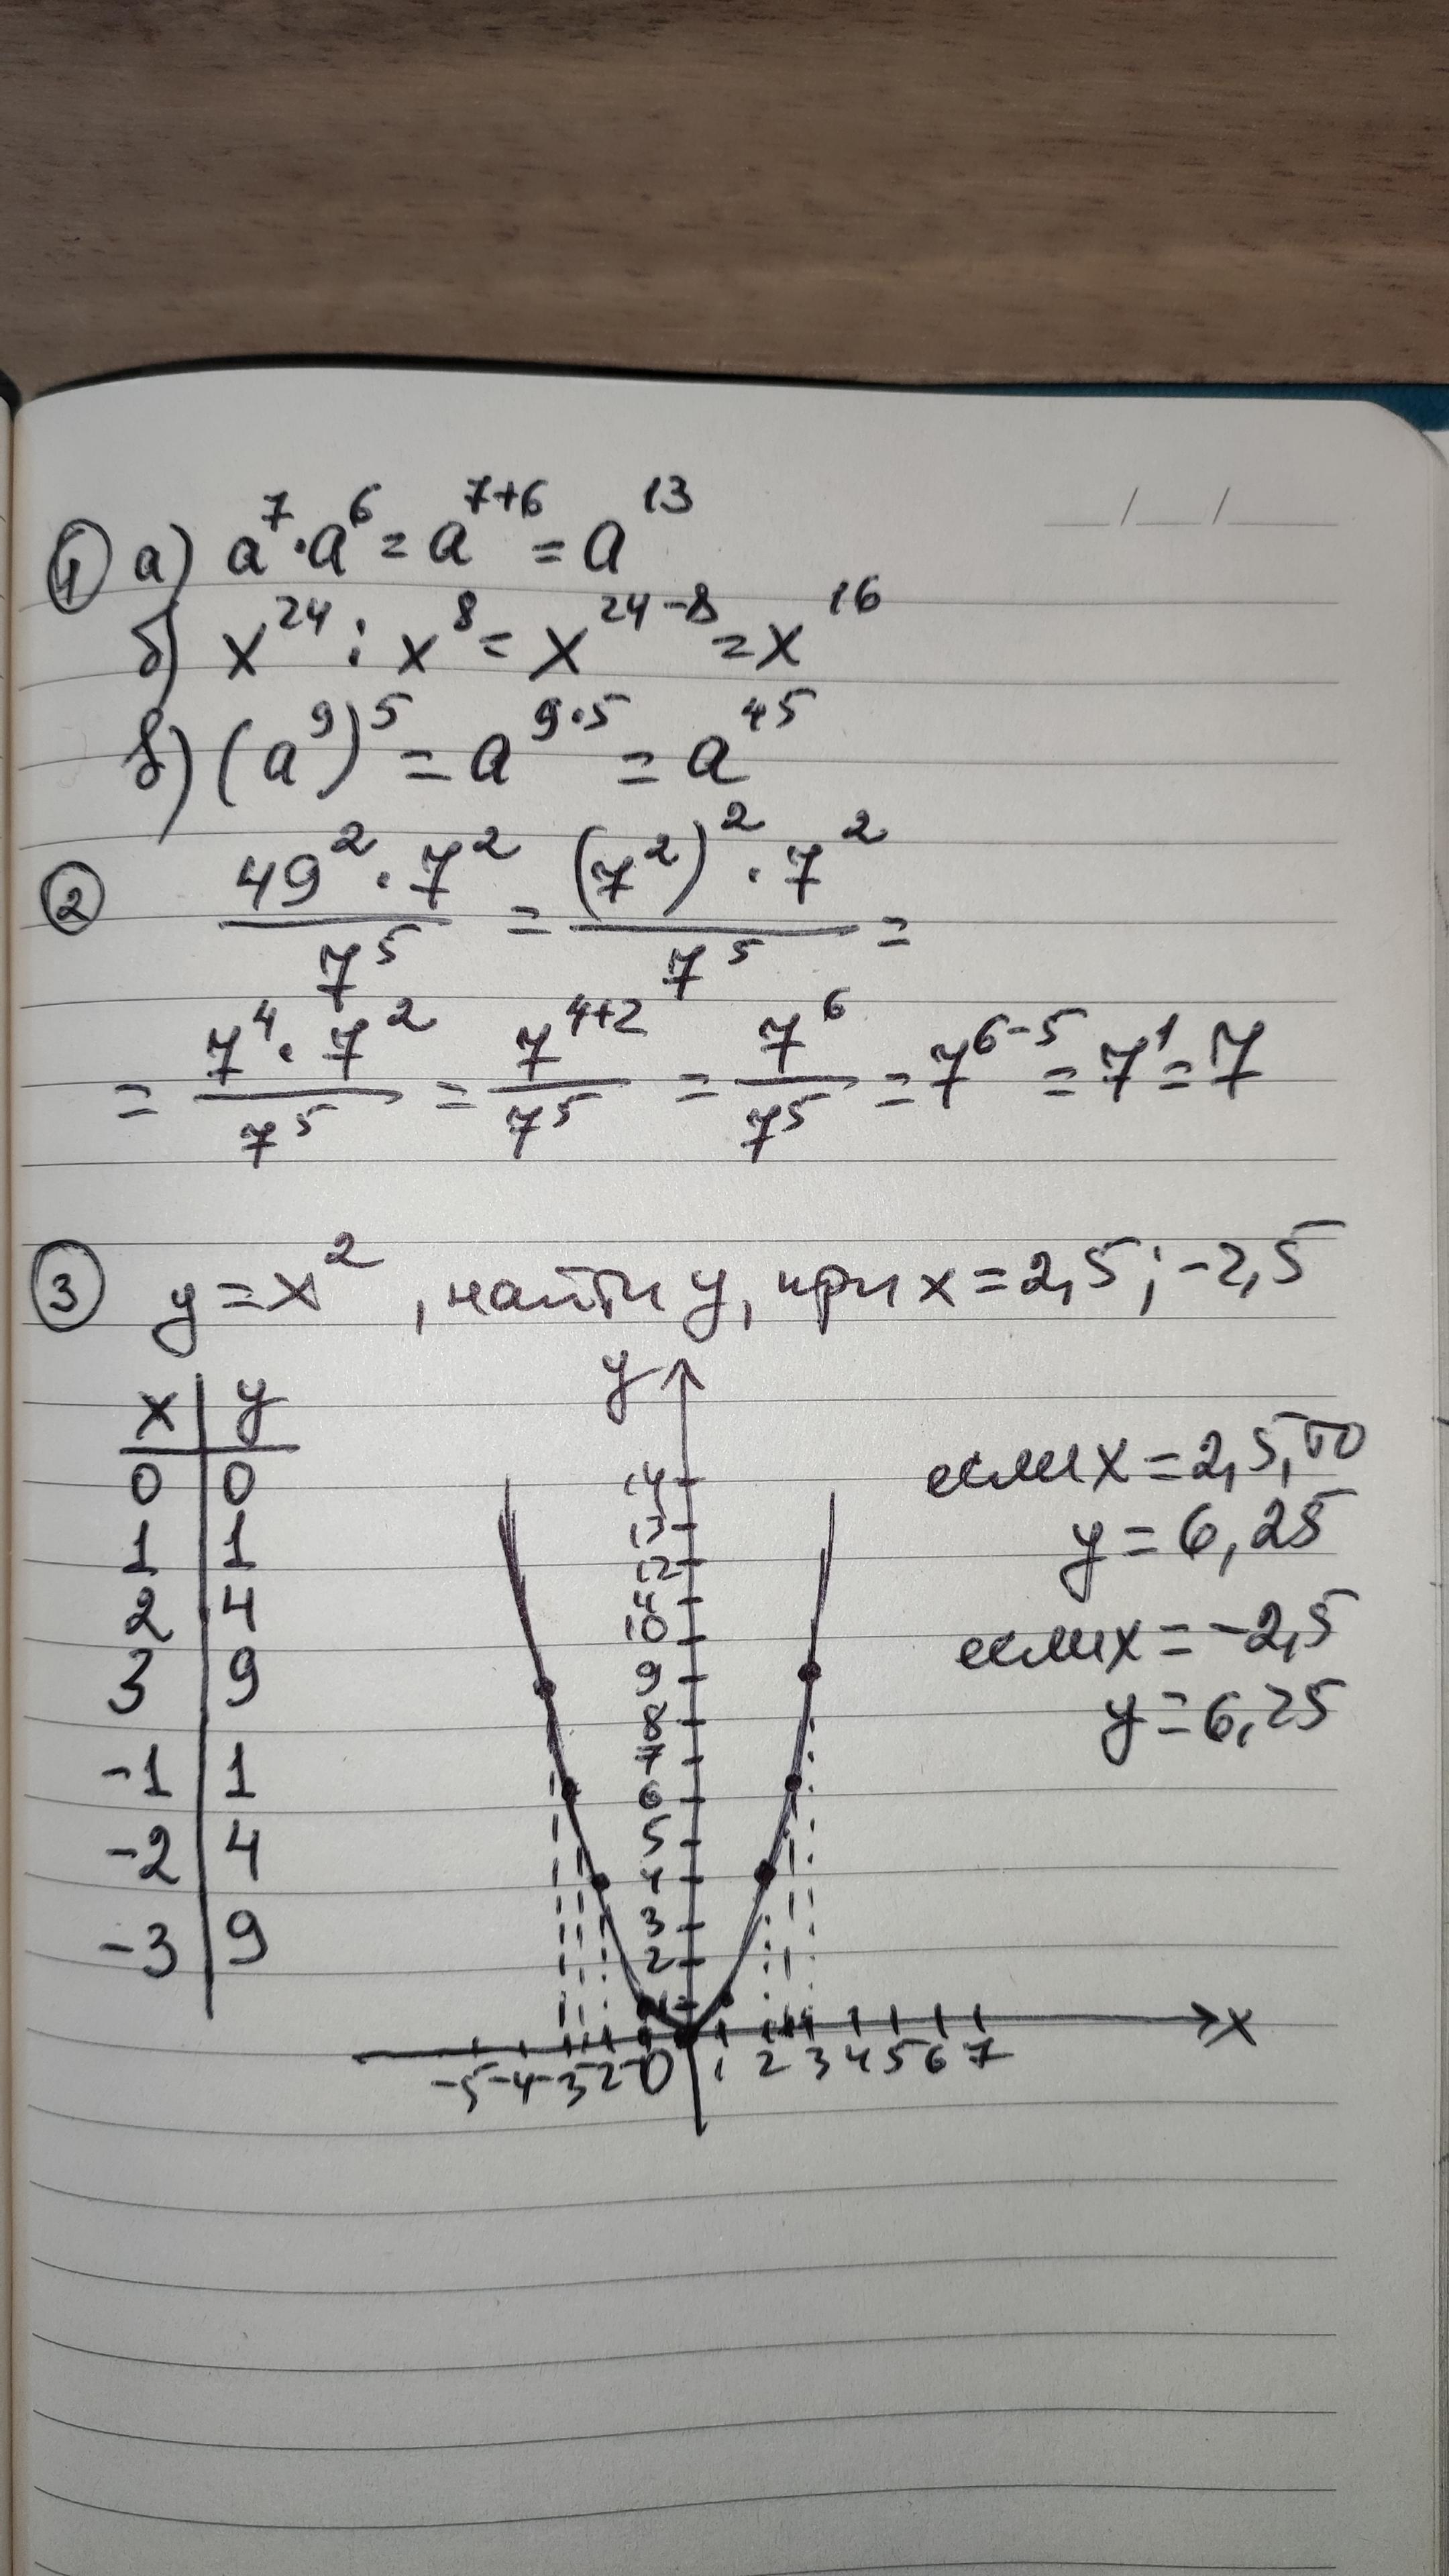 ① а) a⁷·a⁶ = a⁷⁺⁶ = a¹³
б) x²⁴ : x⁸ = x²⁴⁻⁸ = x¹⁶
в) (a⁹)⁵ = a⁹·⁵ = a⁴⁵
② 49²·7² / 7⁵ = (7²)²·7² / 7⁵ =
= 7⁴·7² / 7⁵ = 7⁴⁺² / 7⁵ = 7⁶ / 7⁵ = 7⁶⁻⁵ = 7¹ = 7
③ y = x², найти y, при x = 2,5; -2,5
x | y
0 | 0
1 | 1
2 | 4
3 | 9
-1 | 1
-2 | 4
-3 | 9
y
14
13
12
11
10
9
8
7
6
5
4
3
2
1
-5 -4 -3 -2 -1 0 1 2 3 4 5 6 7
x
если x = 2,5, то
y = 6,25
если x = -2,5
y = 6,25